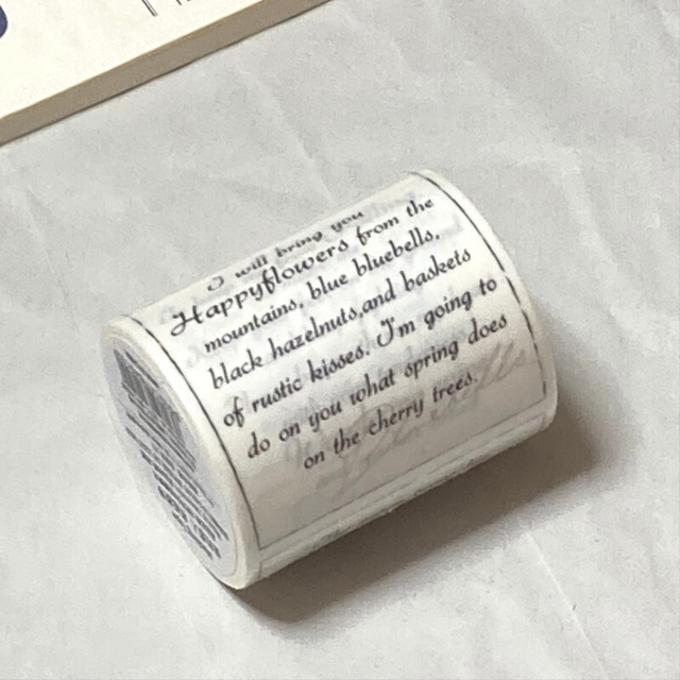 I will bring you
Happyflowers from the
mountains, blue bluebells,
black hazelnuts,and baskets
of rustic kisses. I'm going to
do on you what spring does
on the cherry trees.